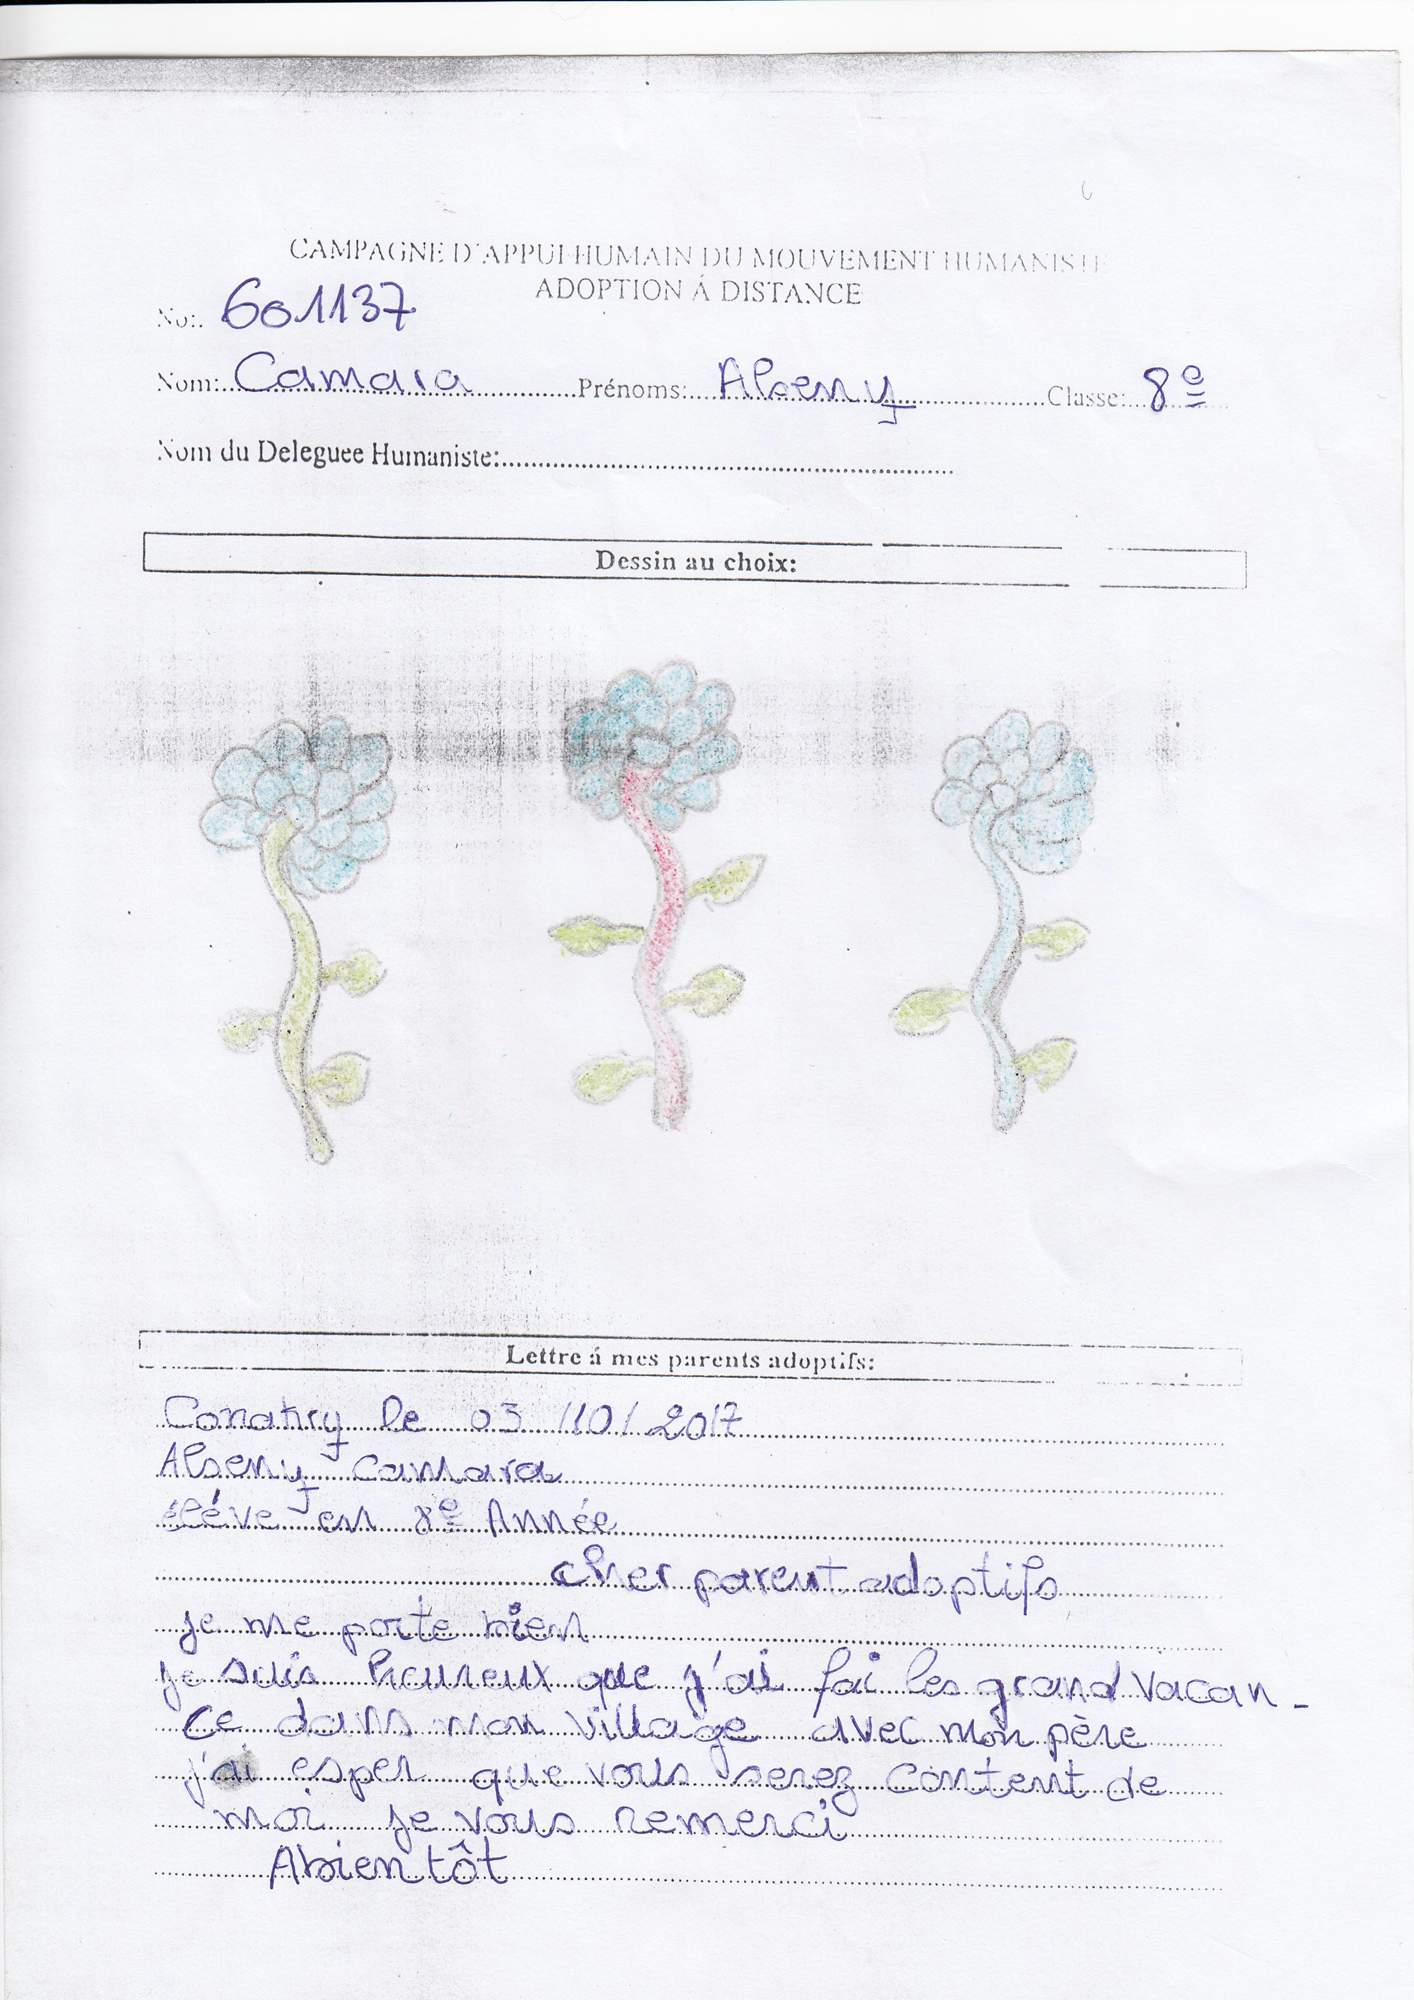 CAMPAGNE D'APPUI HUMAIN DU MOUVEMENT HUMANISTE
ADOPTION Á DISTANCE
No:. 601137
Nom: Camara Prénoms: Alseny Classe: 8e
Nom du Deleguee Humaniste:
Dessin au choix:
Lettre á mes parents adoptifs:
Conakry le 03/10/2017
Alseny camara
élève en 8e Année
cher parent adoptifs
je me porte bien
je suis heureux que j'ai fai les grand vacan-
ce dans mon village avec mon père
j'ai esper que vous serez content de
moi je vous remerci
Abientôt